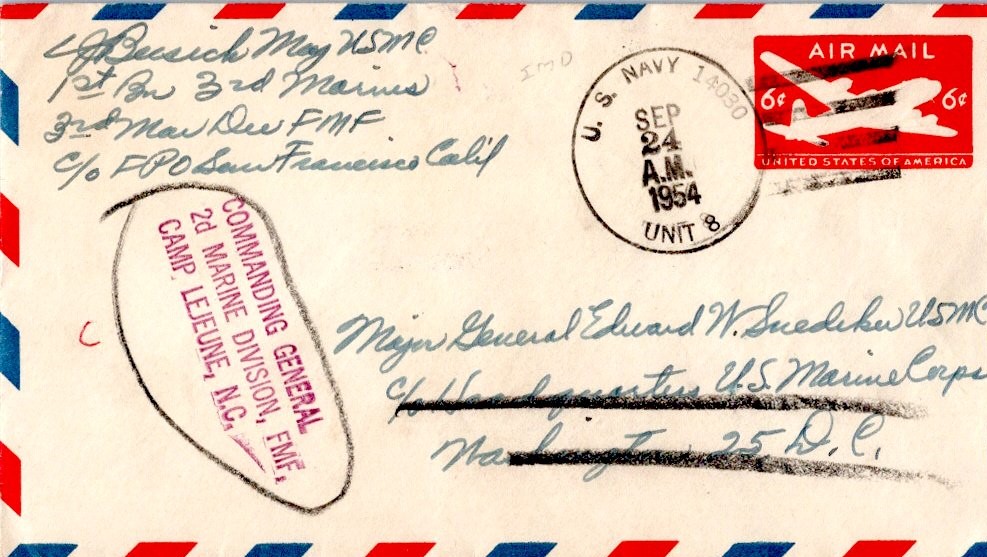 Maj USMC
1st Bn 3rd Marines
3rd Mar Div FMF
c/o FPO San Francisco Calif
U. S. NAVY 14030
SEP
24
A.M.
1954
UNIT 8
AIR MAIL
6¢ 6¢
UNITED STATES OF AMERICA
COMMANDING GENERAL
2d MARINE DIVISION, FMF,
CAMP LEJEUNE, N.C.
Major General Edward W. Snedeker USMC
c/o Headquarters U.S. Marine Corps
Washington 25 D.C.